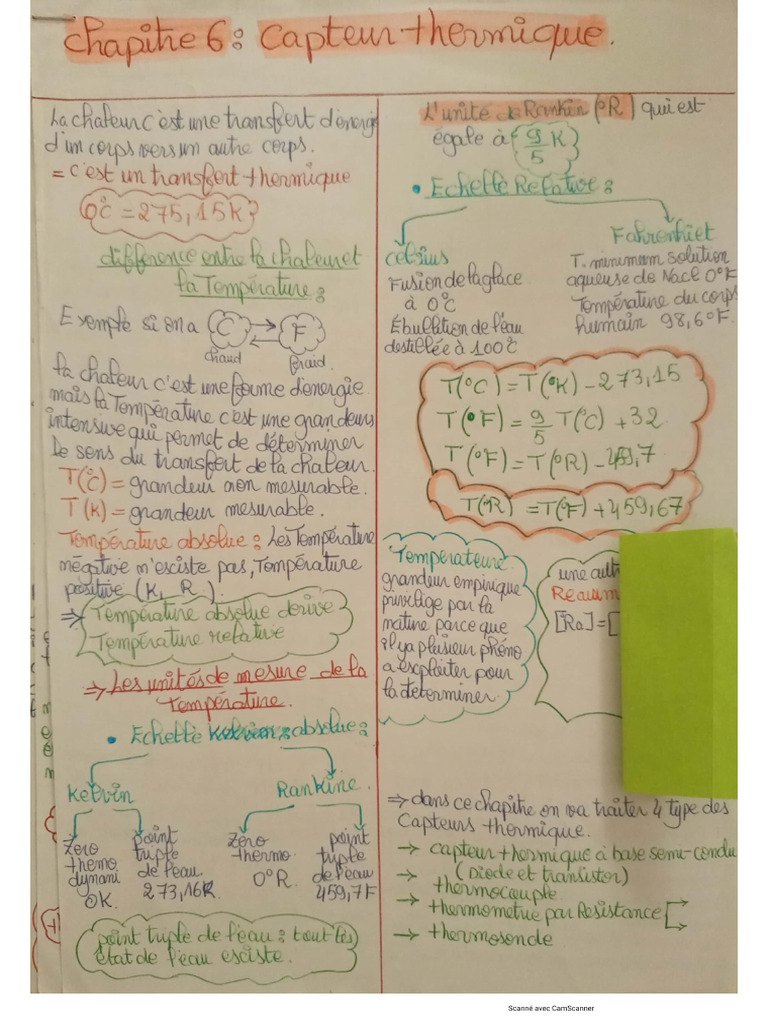 Chapitre 6: Capteur thermique.
La chaleur c'est une transfert d'énergie
d'un corps vers un autre corps.
= c'est un transfert thermique
0°C = 275,15K
différence entre la chaleur et
la Température:
Exemple si on a C F
chaud froid.
la chaleur c'est une forme d'énergie
mais la Température c'est une grandeurs
intensive qui permet de déterminer
Le sens du transfert de la chaleur.
T(°C) = grandeur non mesurable.
T(K) = grandeur mesurable.
Température absolue: Les Température
négative n'esciste pas, Température
positive (K, R).
⇒ Température absolue derive
Température relative
⇒ Les unités de mesure de la
température.
• Echelle absolue:
Kelvin Rankine.
Zero
themo
dynami
0K.
point
triple
de l'eau.
273,16K
Zero
thermo.
0°R.
point
triple
de l'eau
459,7F
point triple de l'eau: tout les
état de l'eau esciste.
L'unité de Rankin (°R) qui est
égale à {9/5 K}
• Echelle Relative:
Celsius
Fusion de la glace
à 0°C
Ébullition de l'eau
destillée à 100°C
Fahrenheit
T. minimum solution
aqueuse de Nacl 0°F
Température du corps
humain 98,6°F.
T(°C) = T(°K) - 273,15
T(°F) = 9/5 T(°C) + 32
T(°F) = T(°R) - 459,7
T(°R) = T(°F) + 459,67
Temperateure
grandeur empirique
privilège par la
nature parce que
il ya plusieur phéno
a escploiter pour
la determiner.
une aut
Reaum
[Ra] = [
⇒ dans ce chapitre on va traiter 4 type des
Capteurs thermique.
→ capteur thermique à base semi-condu
→ (Diode et transistor)
thermocouple
→ thermomètre par Resistance
→ thermosonde
Scanné avec CamScanner